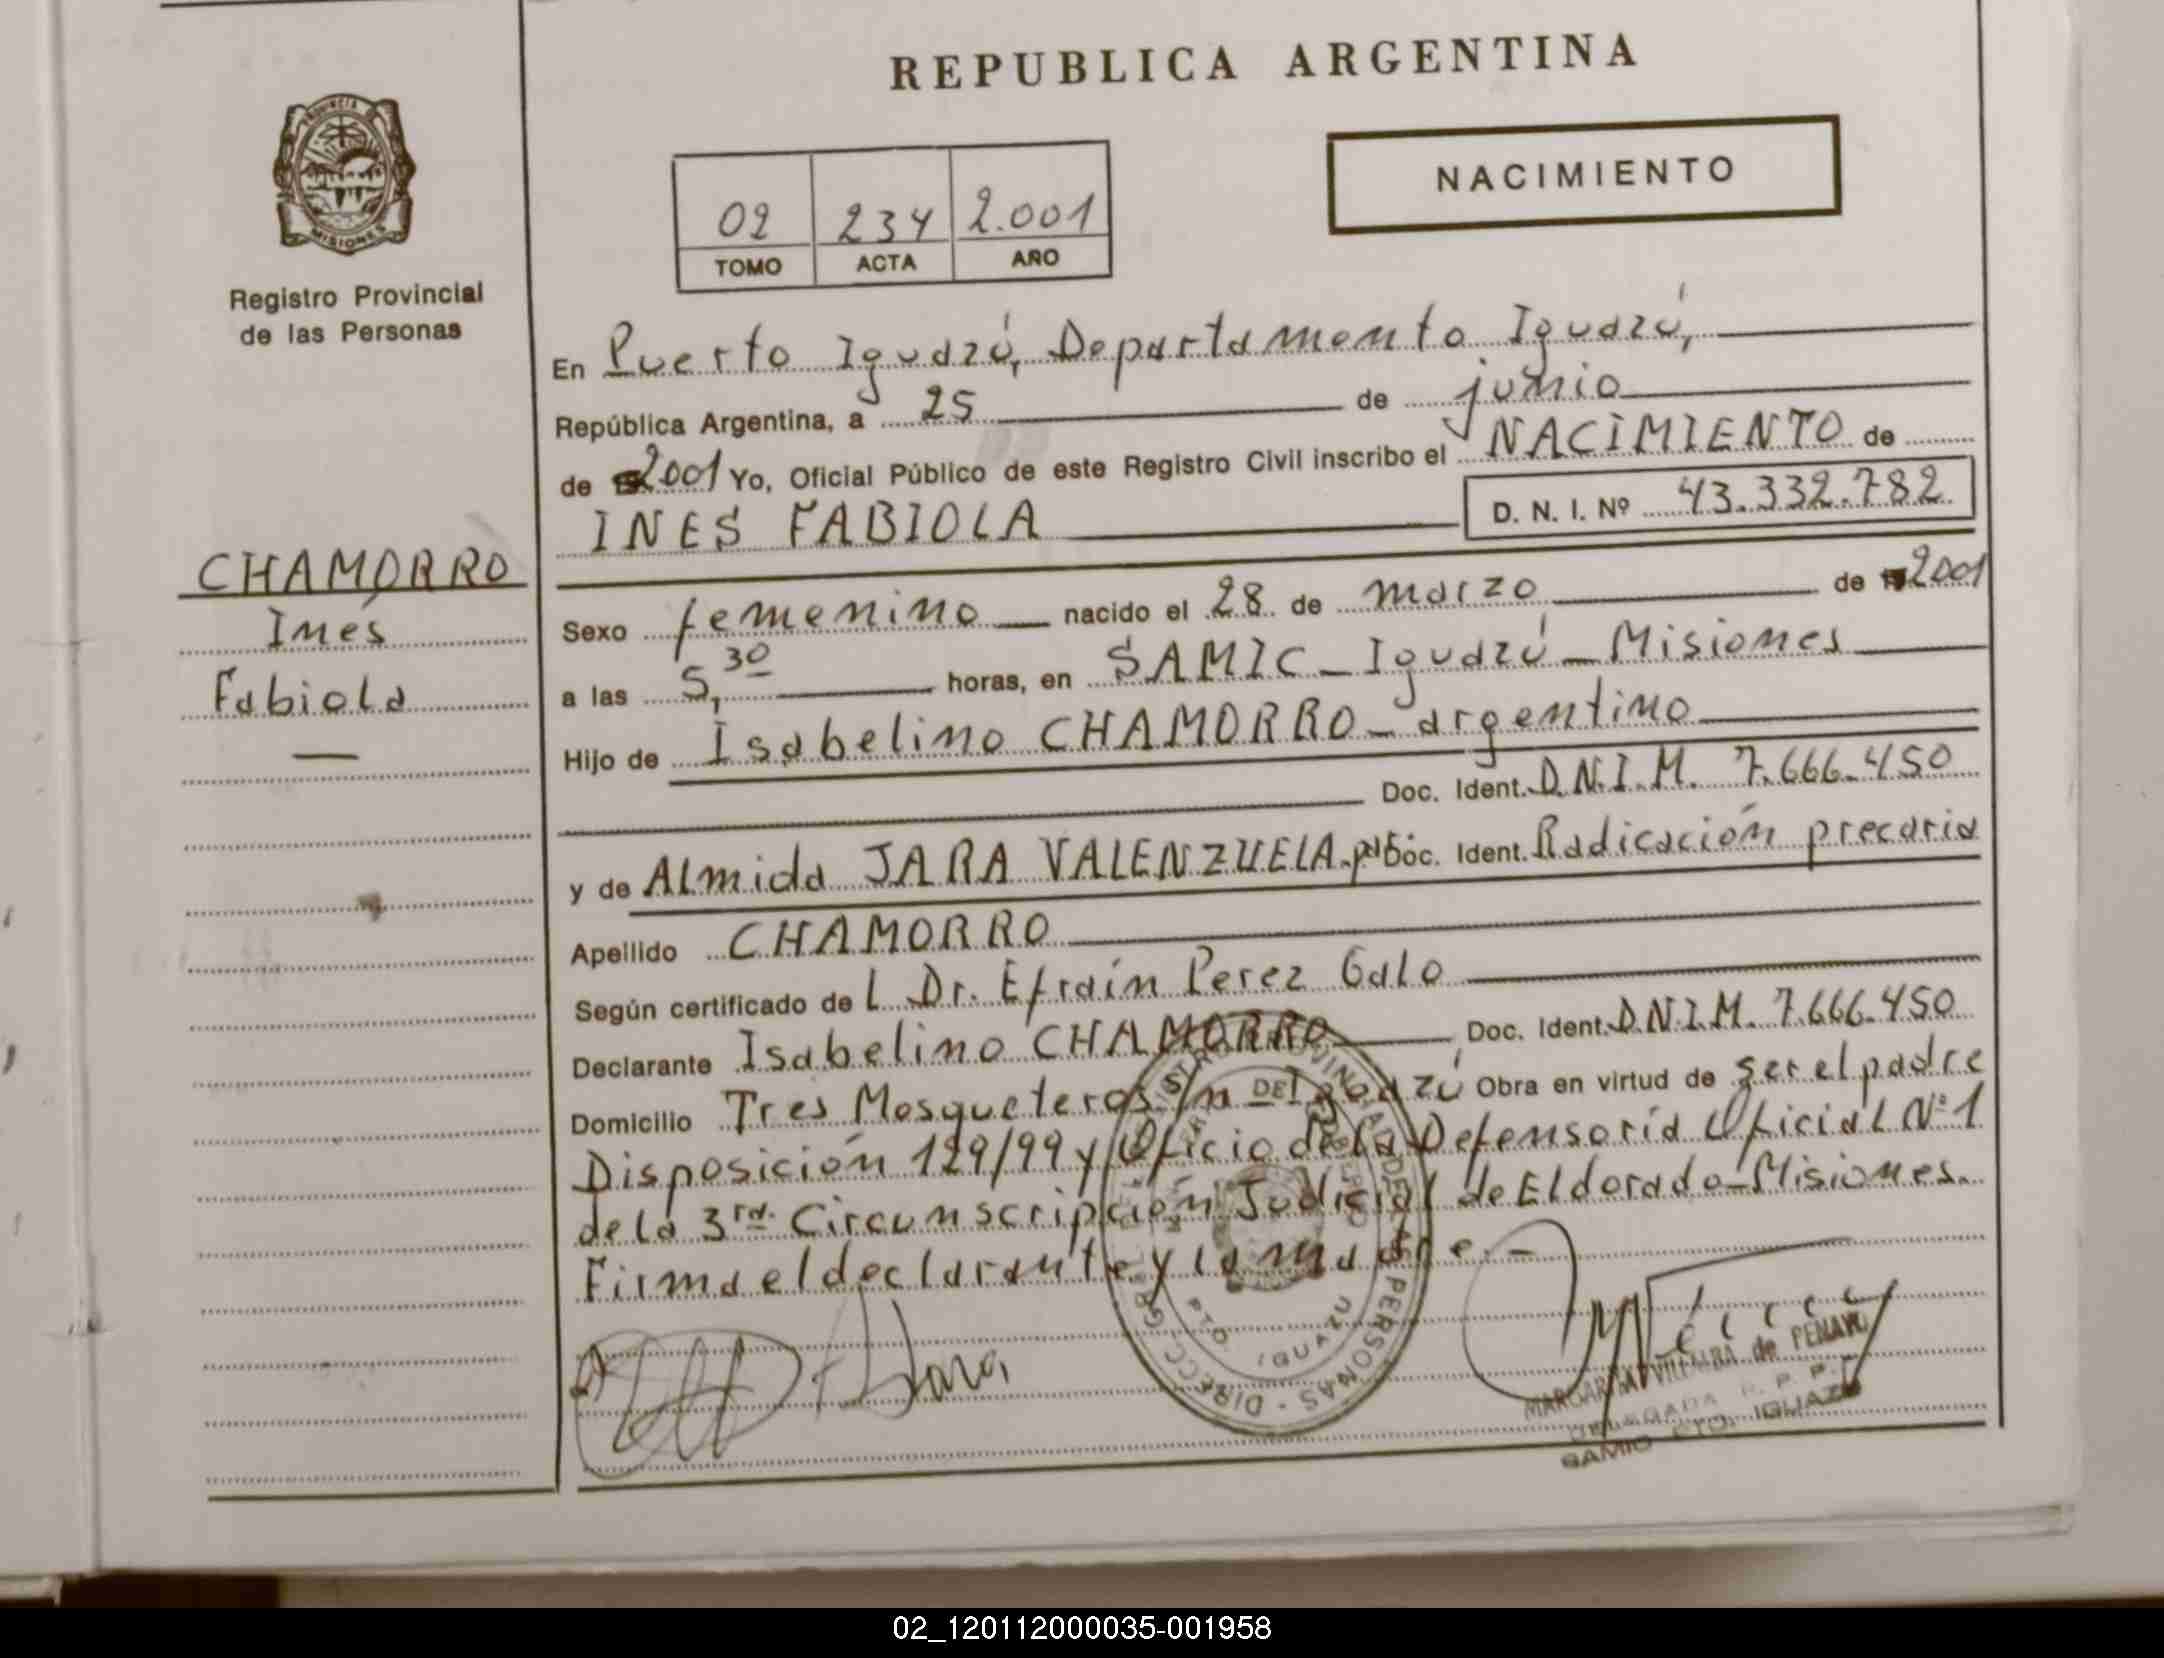 REPUBLICA ARGENTINA
PROVINCIA DE
MISIONES
Registro Provincial
de las Personas
NACIMIENTO
02 234 2.001
TOMO ACTA AÑO
En Puerto Iguazú, Departamento Iguazú,
República Argentina, a 25 de junio
de 2001 Yo, Oficial Público de este Registro Civil inscribo el NACIMIENTO de
INES FABIOLA D. N. I. Nº 43.332.782
CHAMORRO
Inés
Fabiola
Sexo femenino nacido el 28 de marzo de 2001
a las 5,30 horas, en SAMIC - Iguazú - Misiones
Hijo de Isabelino CHAMORRO - argentino
Doc. Ident. D.N.I.M. 7.666.450
y de Almida JARA VALENZUELA Doc. Ident. Radicación precaria
Apellido CHAMORRO
Según certificado del Dr. Efraín Perez Galo
Declarante Isabelino CHAMORRO Doc. Ident. D.N.I.M. 7.666.450
Domicilio Tres Mosqueteros s/n - Iguazú Obra en virtud de ser el padre
Disposición 129/99 y Oficio de la Defensoría Oficial Nº 1
de la 3ra. Circunscripción Judicial de Eldorado - Misiones.
Firma el declarante y la madre. -
Jara
PTO. IGUAZU
MARGARITA VILLALBA de PENAYO
DELEGADA R. P. P.
SAMIC PTO. IGUAZU
02_120112000035-001958